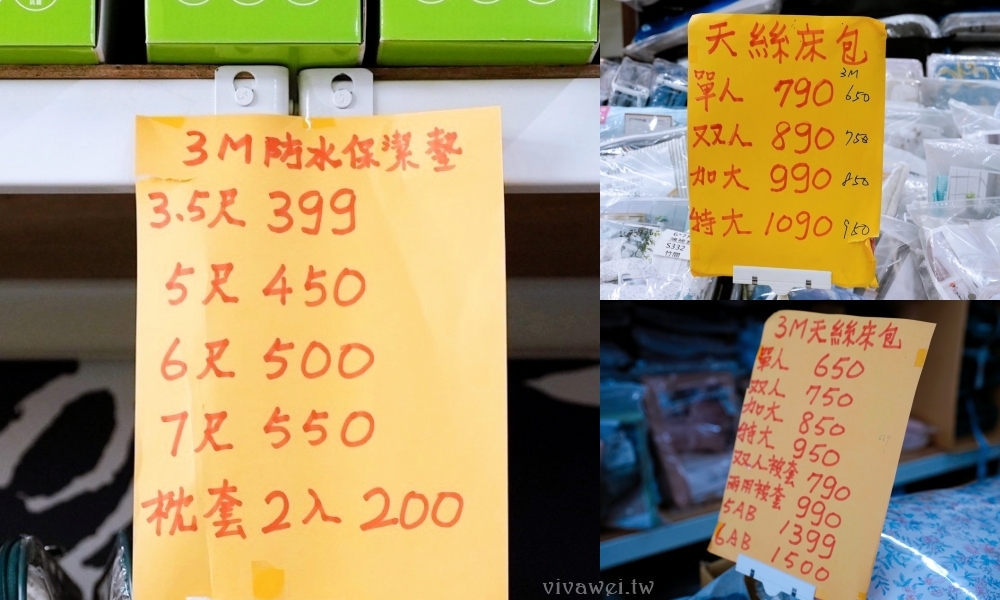 3M防水保潔墊
3.5尺 399
5尺 450
6尺 500
7尺 550
枕套2入 200
天絲床包
3M
單人 790 650
双人 890 750
加大 990 850
特大 1090 950
S332
竹間
3M天絲床包
單人 650
双人 750
加大 850
特大 950
双人被套 790
兩用被套 990
5AB 1399
6AB 1500
vivawei.tw